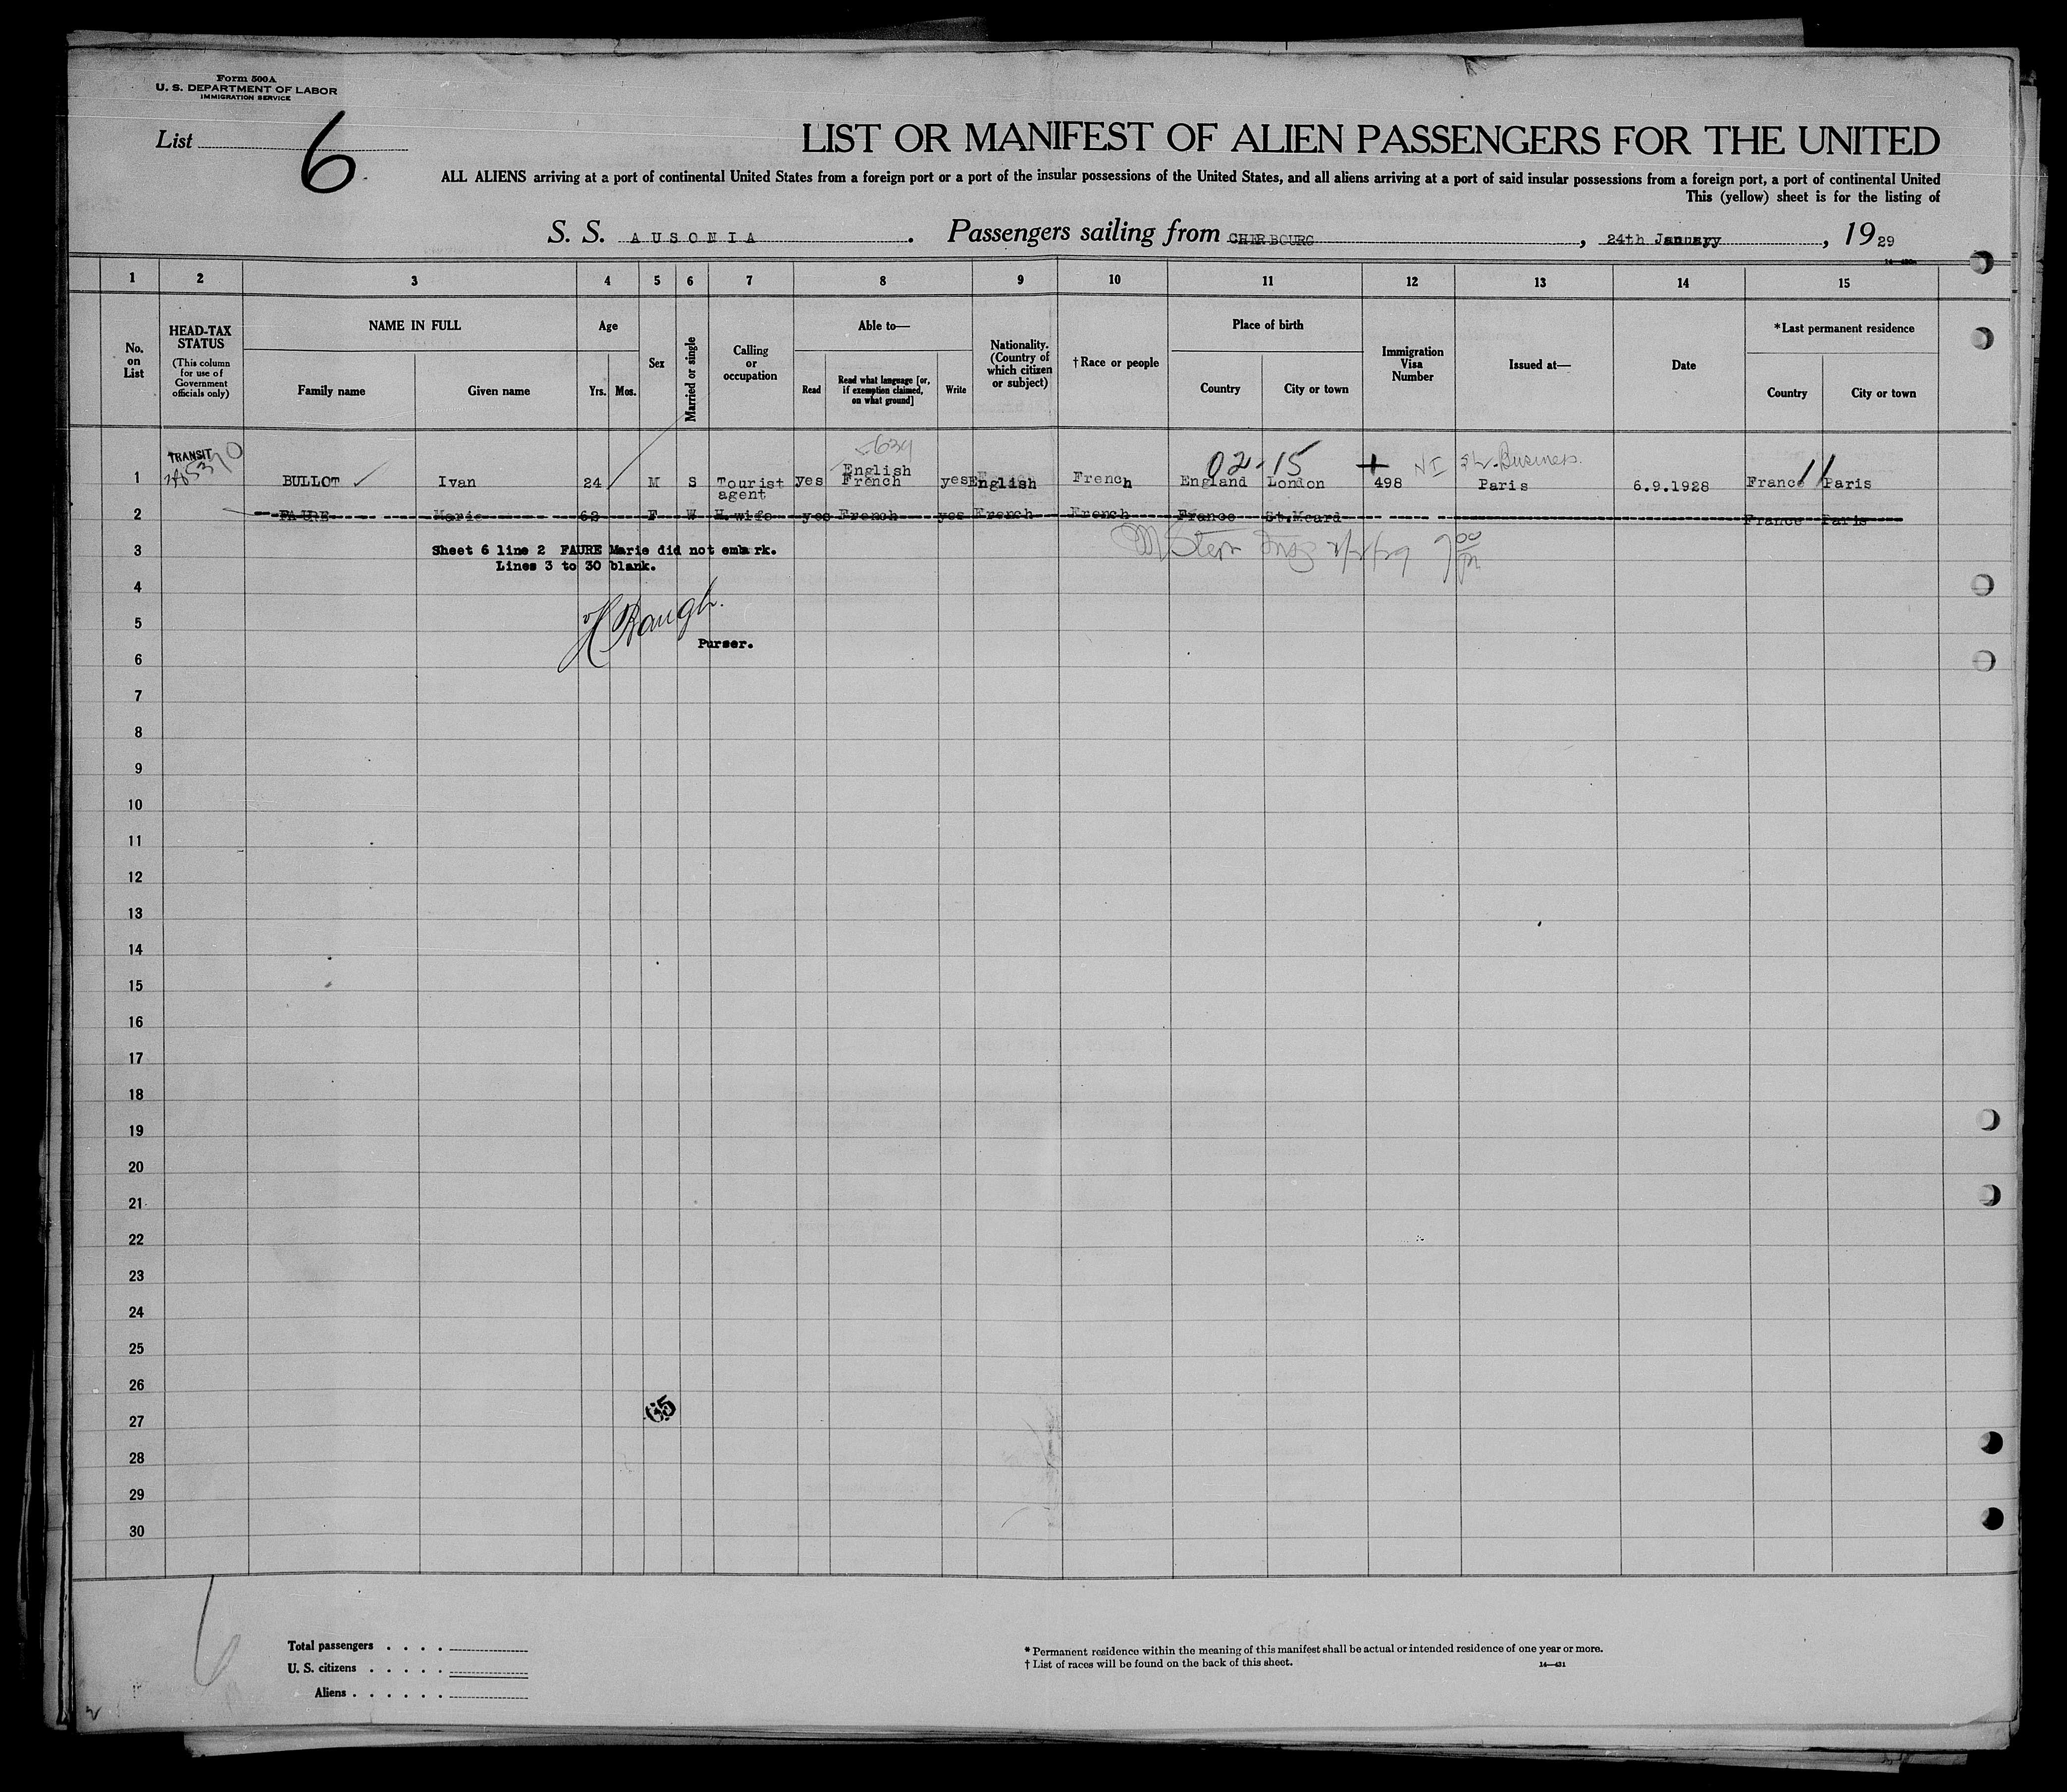 Form 500A
U. S. DEPARTMENT OF LABOR
IMMIGRATION SERVICE
List 6
LIST OR MANIFEST OF ALIEN PASSENGERS FOR THE UNITED
ALL ALIENS arriving at a port of continental United States from a foreign port or a port of the insular possessions of the United States, and all aliens arriving at a port of said insular possessions from a foreign port, a port of continental United
This (yellow) sheet is for the listing of
S. S. AUSONIA. Passengers sailing from CHERBOURG, 24th January, 1929
1 2 3 4 5 6 7 8 9 10 11 12 13 14 15
No. on List
HEAD-TAX STATUS (This column for use of Government officials only)
NAME IN FULL
Family name Given name
Age
Yrs. Mos.
Sex
Married or single
Calling or occupation
Able to—
Read Read what language [or, if exemption claimed, on what ground] Write
Nationality. (Country of which citizen or subject)
†Race or people
Place of birth
Country City or town
Immigration Visa Number
Issued at—
Date
*Last permanent residence
Country City or town
TRANSIT
02-15 NI Business
1 BULLOT Ivan 24 M S Tourist agent yes English French yes English French England London 498 Paris 6.9.1928 France Paris
2 FAURE Marie 62 F W H.wife yes French yes French French France St.Meard France Paris
3 Sheet 6 line 2 FAURE Marie did not embark.
Lines 3 to 30 blank.
4
5
Purser.
6
7
8
9
10
11
12
13
14
15
16
17
18
19
20
21
22
23
24
25
26
65
27
28
29
30
6
Total passengers
U. S. citizens
Aliens
* Permanent residence within the meaning of this manifest shall be actual or intended residence of one year or more.
† List of races will be found on the back of this sheet. 14—431